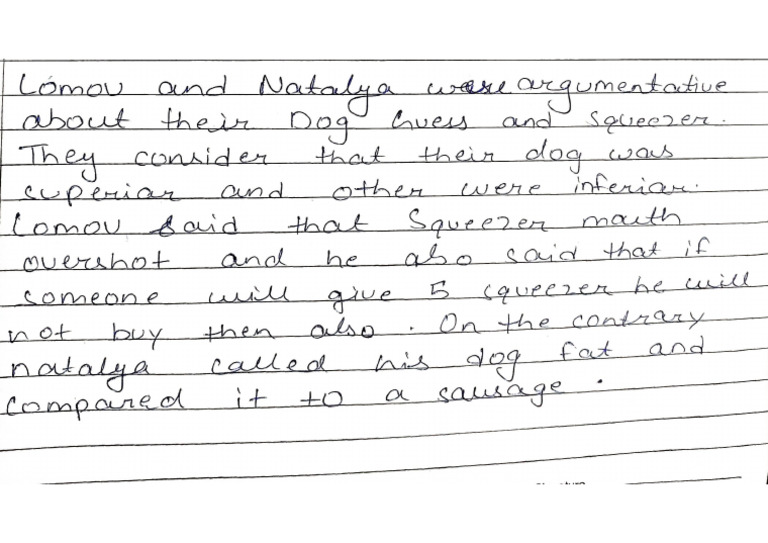 Lomov and Natalya were argumentative
about their Dog Guess and Squeezer.
They consider that their dog was
superior and other were inferior.
Lomov said that Squeezer mouth
overshot and he also said that if
someone will give 5 squeezer he will
not buy then also. On the contrary
natalya called his dog fat and
compared it to a sausage.